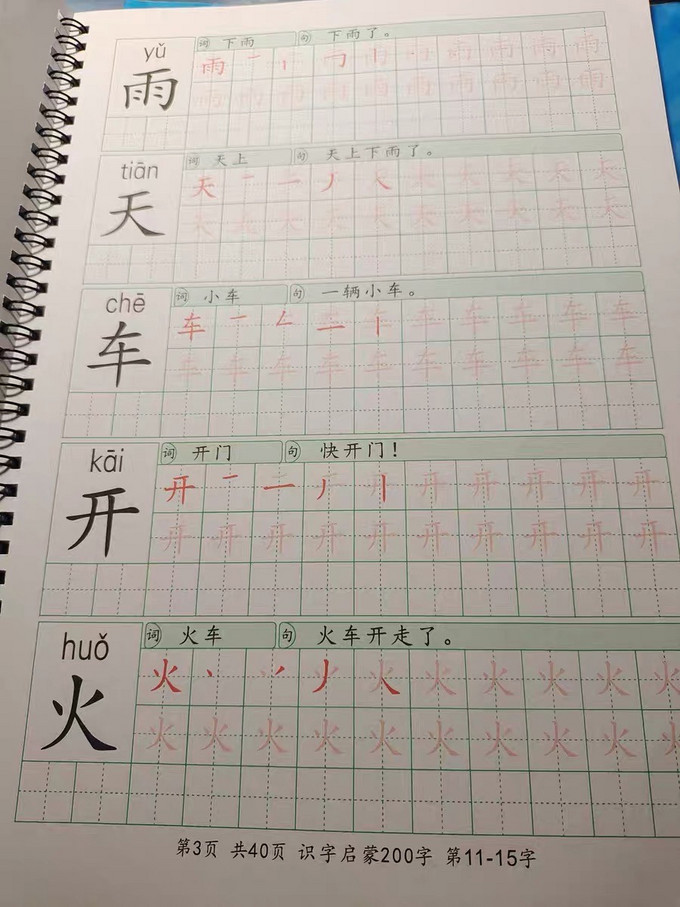 yǔ 词 下雨 句 下雨了。
雨 雨
tiān 词 天上 句 天上下雨了。
天 天
chē 词 小车 句 一辆小车。
车 车
kāi 词 开门 句 快开门！
开 开
huǒ 词 火车 句 火车开走了。
火 火
第3页 共40页 识字启蒙200字 第11-15字